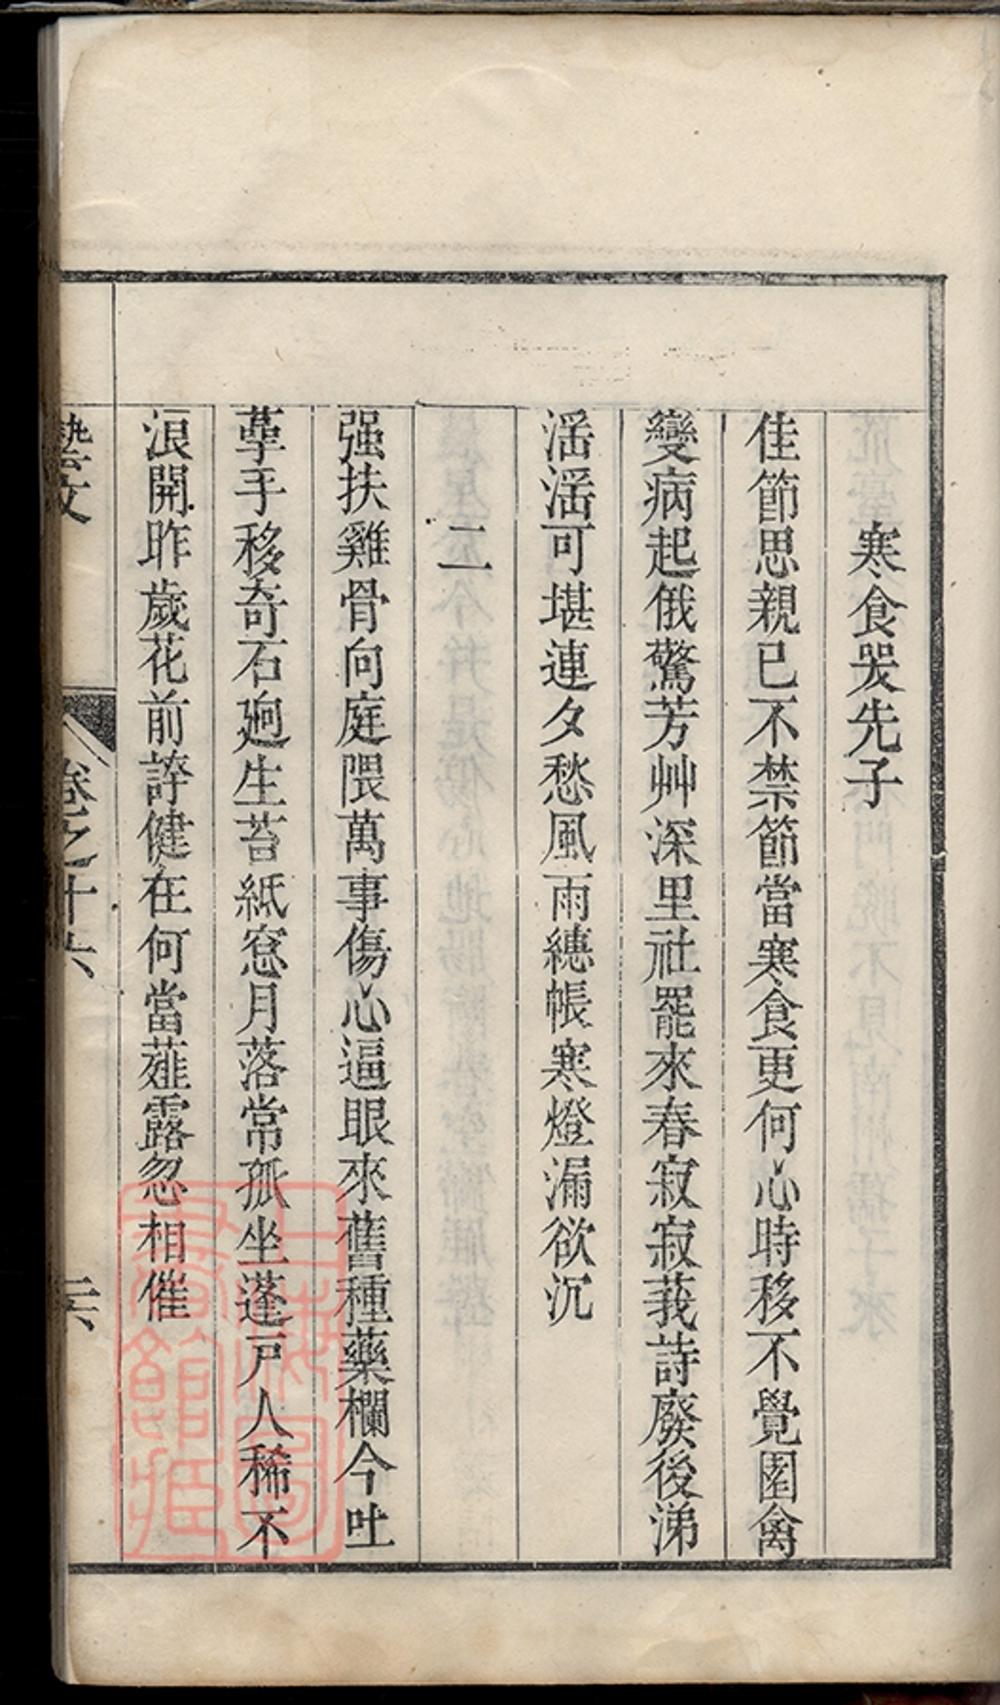 寒食哭先子
佳節思親已不禁節當寒食更何心時移不覺園禽
變病起俄驚芳艸深里社罷來春寂寂莪詩廢後涕
滛滛可堪連夕愁風雨繐帳寒燈漏欲沉
二
强扶雞骨向庭隈萬事傷心逼眼來舊種藥欄今吐
蕚手移奇石廻生苔紙窓月落常孤坐蓬戸人稀不
浪開昨歲花前誇健在何當薤露忽相催
藝文
卷之十六
上海圖
書館藏